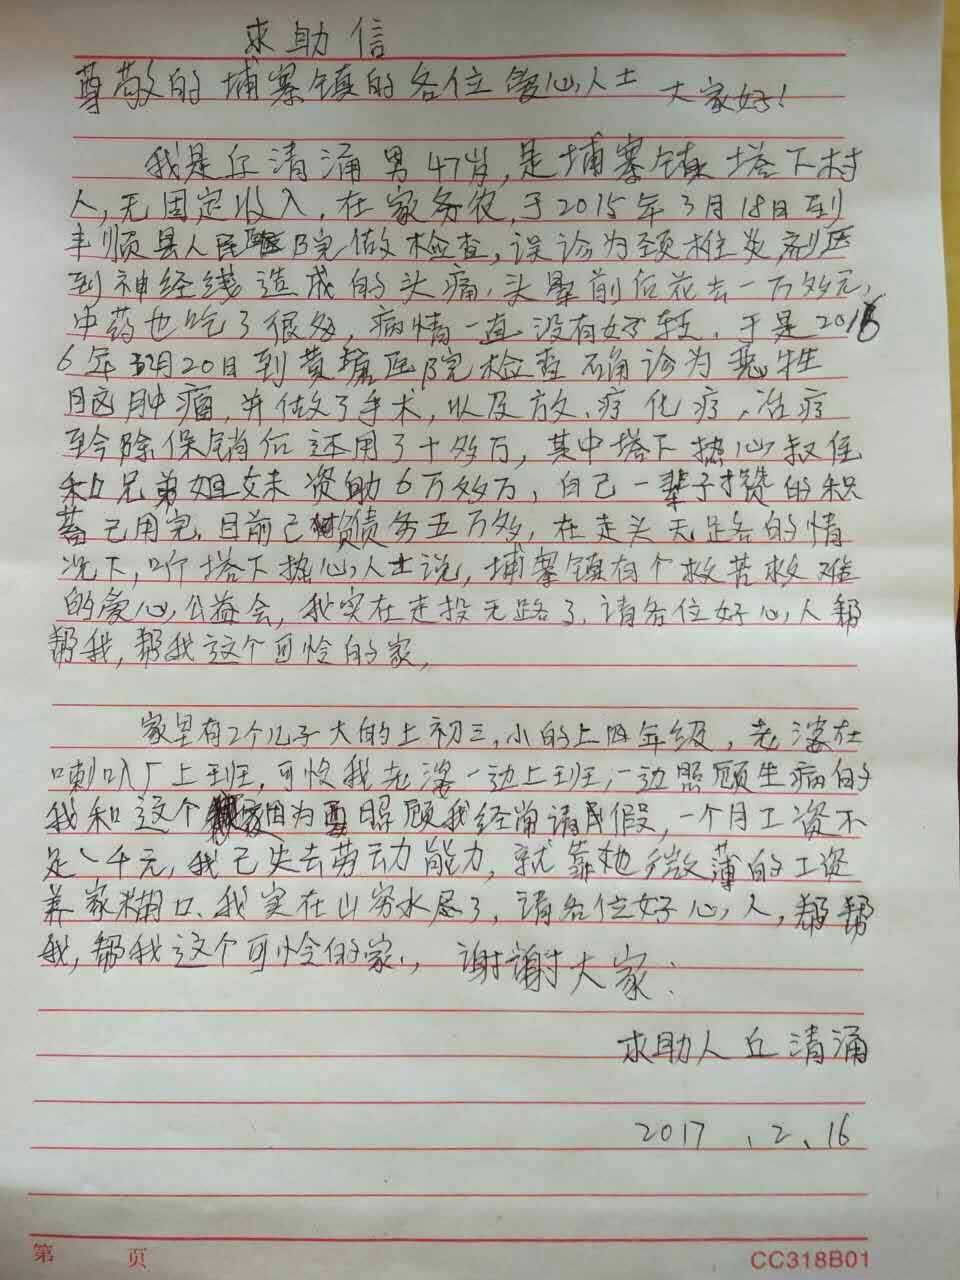 求助信
尊敬的埔寨镇的各位爱心人士 大家好！
我是丘清涌男47岁，是埔寨镇塔下村
人，无固定收入，在家务农，于2015年3月18日到
丰顺县人民医院做检查，误诊为颈椎炎刺压
到神经线造成的头痛，头晕前后花去一万多元，
中药也吃了很多，病情一直没有好转，于是2016
6年2月20日到黄塘医院检查确诊为恶性
脑肿瘤，并做了手术，以及放疗化疗，治疗
至今除保销后还用了十多万，其中塔下热心叔侄
和兄弟姐妹资助6万多万，自己一辈子攒的积
蓄已用完，目前已欠债务五万多，在走头无路的情
况下，听塔下热心人士说，埔寨镇有个救苦救难
的爱心公益会，我实在走投无路了，请各位好心人帮
帮我，帮我这个可怜的家，
家里有2个儿子大的上初三，小的上四年级，老婆在
喇叭厂上班，可怜我老婆一边上班，一边照顾生病的
我和这个家因为要照顾我经常请假，一个月工资不
足八千元，我已失去劳动能力，就靠她微薄的工资
养家糊口、我实在山穷水尽了，请各位好心人，帮帮
我，帮我这个可怜的家，谢谢大家：
求助人丘清涌
2017、2、16
第 页 CC318B01